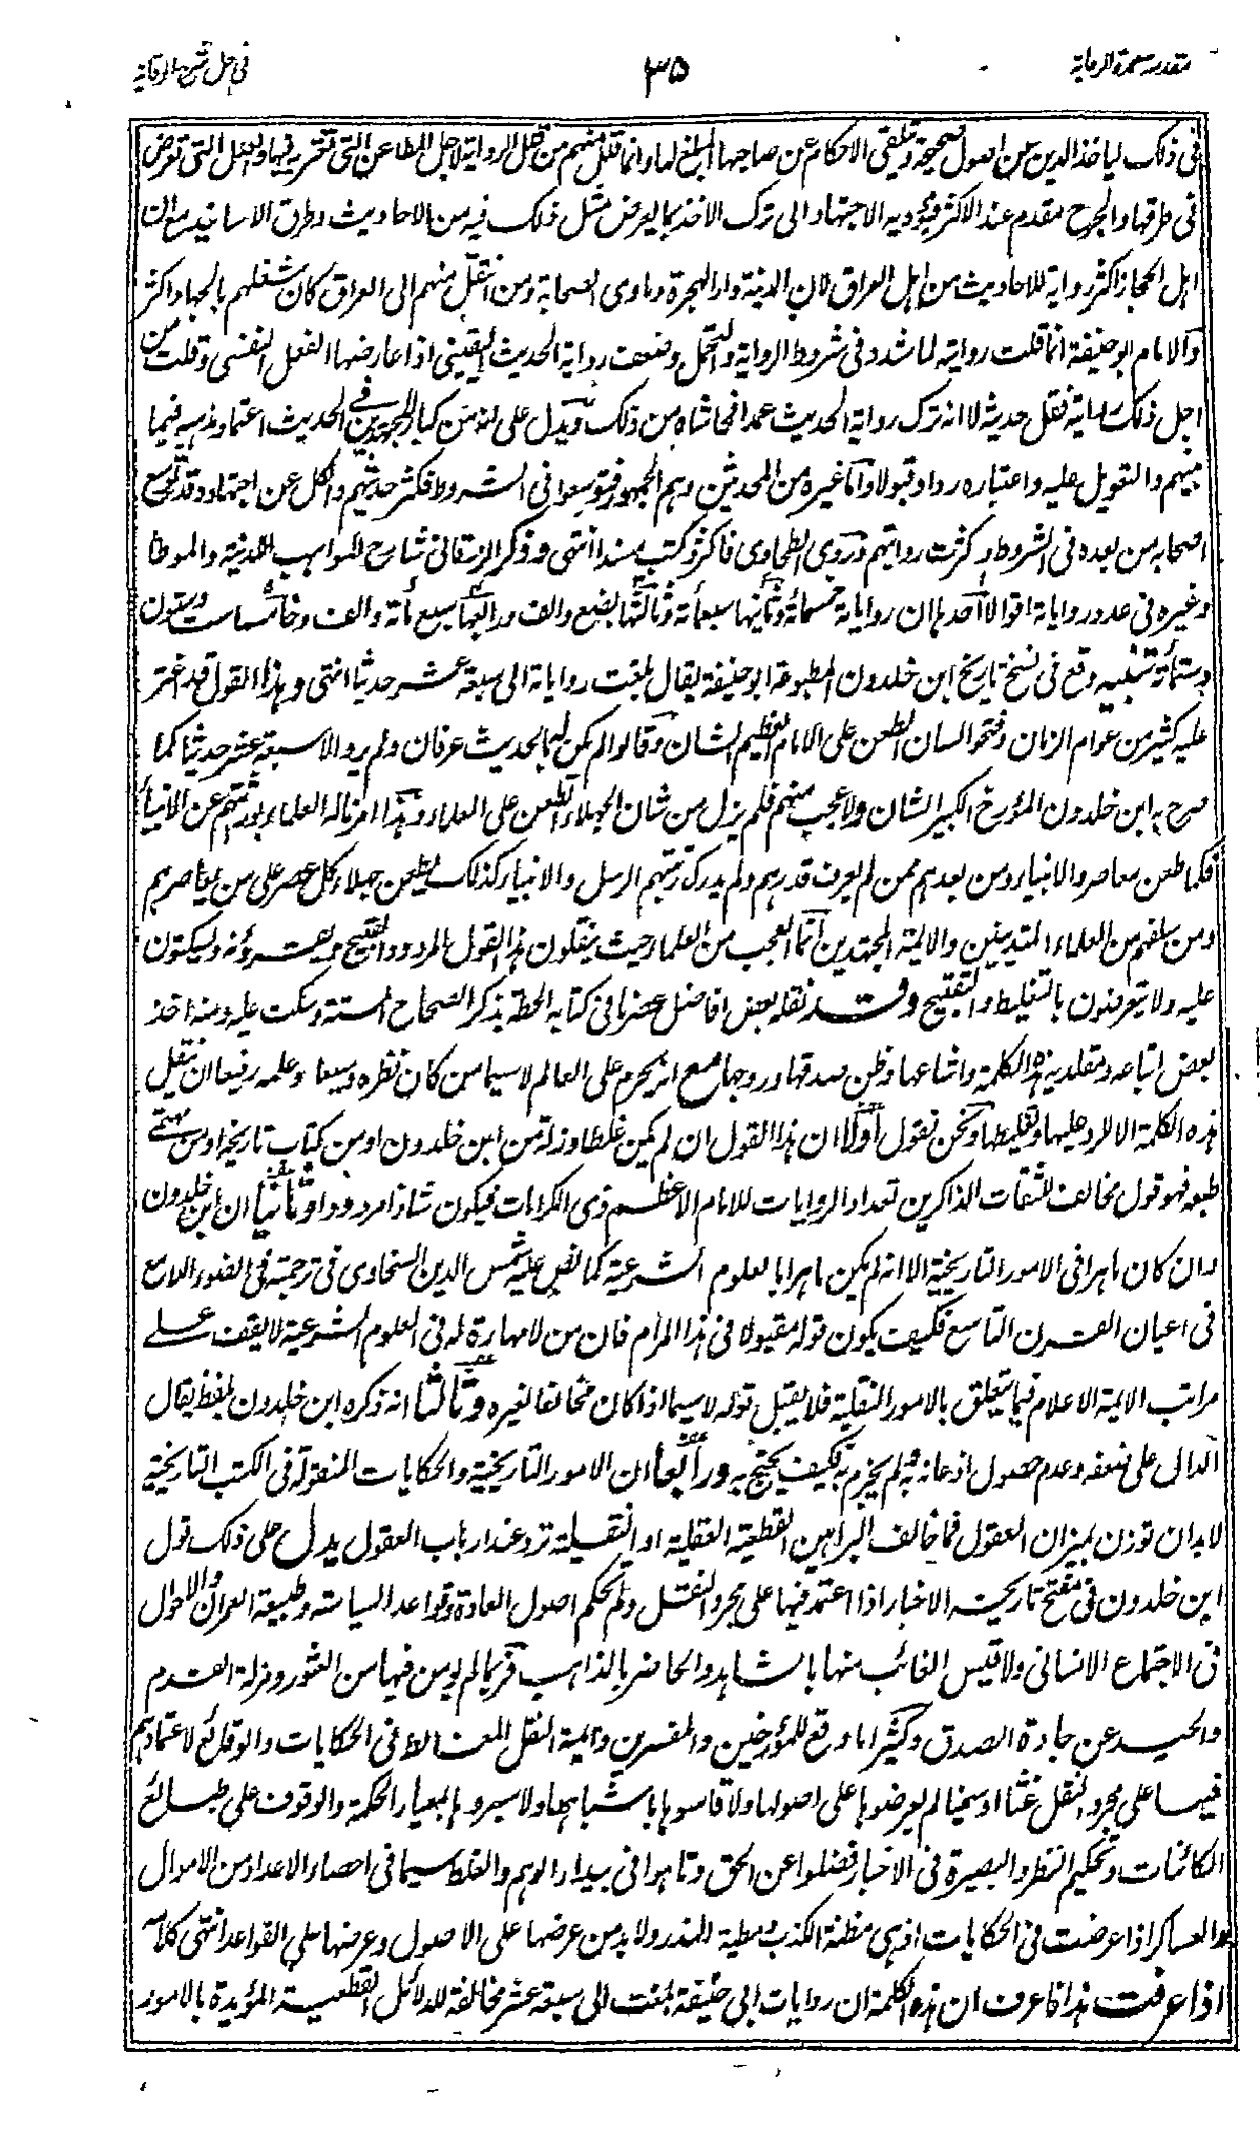 مقدمه عمدة الرعاية
۳۵
فى حل شرح الوقاية
فى ذلك لياخذ الدين عن اصول صحيحة ويتلقى الاحكام عن صاحبها المبلغ لها وانما قلل منهم من قلل الرواية لاجل المطاعن التى تعتريه فيها والعلل التى تعرض
فى طرقها والجرح مقدم عند الاكثر فيؤديه الاجتهاد الى ترك الاخذ بما يعرض مثل ذلك فيه من الاحاديث وطرق الاسانيد مع ان
اهل الحجاز اكثر رواية للاحاديث من اهل العراق لان المدينة دار الهجرة وماوى الصحابة ومن انتقل منهم الى العراق كان شغلهم بالجهاد اكثر
والامام ابو حنيفة انما قلت روايته لما شدد فى شروط الرواية والتحمل وضعف رواية الحديث اليقينى اذا عارضها الفعل النفسى وقلت من
اجل ذلك رواية فقل حديثه لا انه ترك رواية الحديث عمدا فحاشاه من ذلك ويدل على انه من كبار المجتهدين فى الحديث اعتماد مذهبه فيما
بينهم والتعويل عليه واعتباره ردا وقبولا واما غيره من المحدثين وهم الجمهور فتوسعوا فى الشروط فكثر حديثهم والكل عن اجتهاد وقد توسع
اصحابه من بعده فى الشروط وكثرت روايتهم وروى الطحاوى فاكثر وكتب مسندا انتهى وذكر الزرقانى شارح المواهب اللدنية والموطا
وغيره فى عدد رواياته اقوالا احدها ان رواياته خمسمائة وثانيها سبعمأة وثالثها بضع والف ورابعها سبع مأة والف وخامسها ست وستون
وستمأة تنبيه وقع فى نسخ تاريخ ابن خلدون المطبوعة ابو حنيفة يقال بلغت رواياته الى سبعة عشر حديثا انتهى وهذا القول قد اغتر
عليه كثير من عوام الزمان وفتحوا لسان الطعن على الامام العظيم الشان وقالوا لم يكن له بالحديث عرفان ولم يرو الا سبعة عشر حديثا كما
صرح به ابن خلدون المؤرخ الكبير الشان ولا عجب منهم فلم يزل من شان الجهلاء الطعن على العلماء وهذا امر ناله العلماء بوراثتهم عن الانبياء
فكما طعن معاصرو الانبياء ومن بعدهم ممن لم يعرف قدرهم ولم يدرك رتبتهم الرسل والانبياء كذلك يطعن جهلاء كل عصر على من يعاصرهم
ومن سلفهم من العلماء المتدينين والائمة المجتهدين انما العجب من العلماء حيث ينقلون هذا القول المردود القبيح ويقرؤنه ويسكتون
عليه ولا يتعرضون بالتغليط والتقبيح وقد نقله بعض افاضل عصرنا فى كتابه الحطة بذكر الصحاح الستة وسكت عليه ومنه اخذ
بعض اتباعه ومقلديه هذه الكلمة واشاعها وظن صدقها وروجها مع انه يحرم على العالم لا سيما من كان نظره وسيعا وعلمه رفيعا ان ينقل
هذه الكلمة الا للرد عليها وتغليطها ونحن نقول اولا ان هذا القول ان لم يكن غلطا وزلة من ابن خلدون او من كتاب تاريخه او من مهتمى
طبعه فهو قول مخالف للثقات الذاكرين تعداد الروايات للامام الاعظم ذى الكرامات فيكون شاذا مردودا وثانيا ان ابن خلدون
وان كان ماهرا فى الامور التاريخية الا انه لم يكن ماهرا بالعلوم الشرعية كما نص عليه شمس الدين السخاوى فى ترجمته فى الضوء اللامع
فى اعيان القرن التاسع فكيف يكون قوله مقبولا فى هذا المرام فان من لا مهارة له فى العلوم الشرعية لا يقف على
مراتب الائمة الاعلام فيما يتعلق بالامور النقلية فلا يقبل قوله لا سيما اذا كان مخالفا لغيره وثالثا انه ذكره ابن خلدون بلفظ يقال
الدال على ضعفه وعدم حصول اذعانه به فلم يجزم به فكيف يحتج به ورابعا ان الامور التاريخية والحكايات المنقولة فى الكتب التاريخية
لابد ان توزن بميزان العقول فما خالف البراهين القطعية العقلية او النقلية ترد عند ارباب العقول يدل على ذلك قول
ابن خلدون فى مفتتح تاريخه الاخبار اذا اعتمد فيها على مجرد النقل ولم تحكم اصول العادة وقواعد السياسة وطبيعة العمران والاحوال
فى الاجتماع الانسانى ولا قيس الغائب منها بالشاهد والحاضر بالذاهب فربما لم يؤمن فيها من العثور ومزلة القدم
والحيد عن جادة الصدق وكثيرا ما وقع للمؤرخين والمفسرين وائمة النقل المغالط فى الحكايات والوقائع لاعتمادهم
فيها على مجرد النقل غثا او سمينا لم يعرضوها على اصولها ولا قاسوها باشباهها ولا سبروها بمعيار الحكمة والوقوف على طبائع
الكائنات وتحكيم النظر والبصيرة فى الاخبار فضلوا عن الحق وتاهوا فى بيداء الوهم والغلط سيما فى احصاء الاعداد من الاموال
والعساكر اذا عرضت فى الحكايات اذ هى مظنة الكذب ومطية الهذر ولابد من عرضها على الاصول وعرضها على القواعد انتهى كلامه
اذا عرفت هذا فاعرف ان هذه الكلمة ان روايات ابى حنيفة بلغت الى سبعة عشر مخالفة للدلائل القطعية المؤيدة بالامور